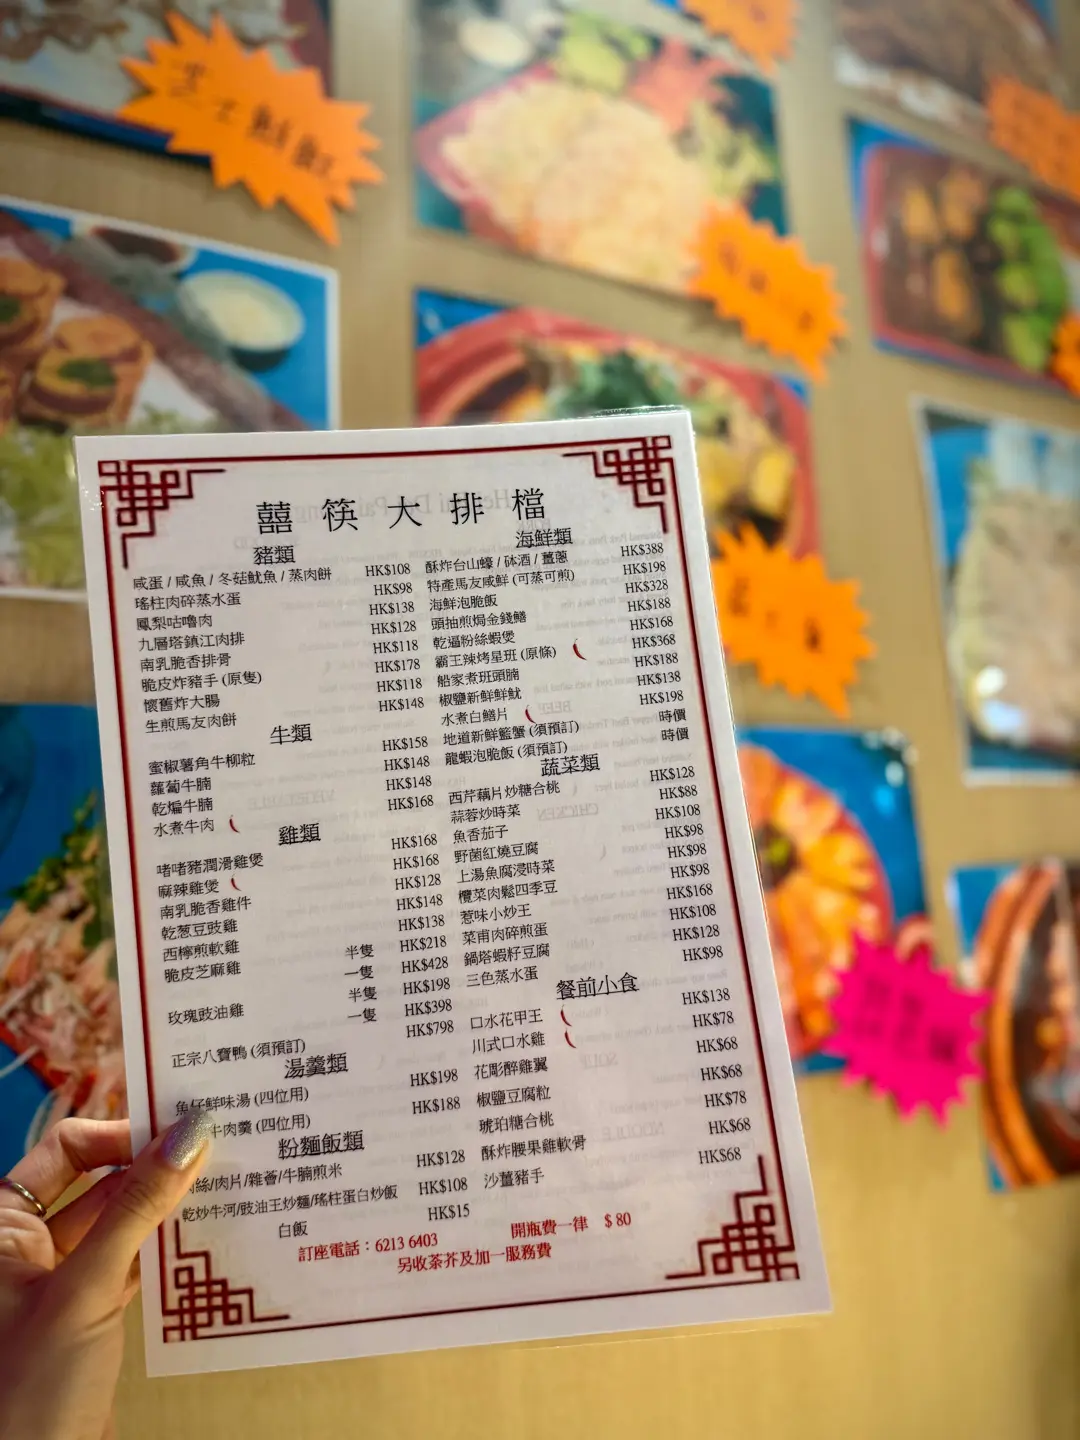 囍筷大排檔
豬類
咸蛋 / 咸魚 / 冬菇魷魚 / 蒸肉餅 HK$108
瑤柱肉碎蒸水蛋 HK$98
鳳梨咕嚕肉 HK$138
九層塔鎮江肉排 HK$128
南乳脆香排骨 HK$118
脆皮炸豬手 (原隻) HK$178
懷舊炸大腸 HK$118
生煎馬友肉餅 HK$148
牛類
蜜椒薯角牛柳粒 HK$158
蘿蔔牛腩 HK$148
乾煸牛腩 HK$148
水煮牛肉 HK$168
雞類
啫啫豬潤滑雞煲 HK$168
麻辣雞煲 HK$168
南乳脆香雞件 HK$128
乾葱豆豉雞 HK$148
西檸煎軟雞 HK$138
脆皮芝麻雞 半隻 HK$218
一隻 HK$428
玫瑰豉油雞 半隻 HK$198
一隻 HK$398
正宗八寶鴨 (須預訂) HK$798
湯羹類
魚仔鮮味湯 (四位用) HK$198
牛肉羹 (四位用) HK$188
粉麵飯類
絲/肉片/雜薈/牛腩煎米 HK$128
乾炒牛河/豉油王炒麵/瑤柱蛋白炒飯 HK$108
白飯 HK$15
海鮮類
酥炸台山蠔 / 砵酒 / 薑蔥 HK$388
特產馬友咸鮮 (可蒸可煎) HK$198
海鮮泡脆飯 HK$328
頭抽煎焗金錢鱔 HK$188
乾逼粉絲蝦煲 HK$168
霸王辣烤星班 (原條) HK$368
船家煮班頭腩 HK$188
椒鹽新鮮鮮魷 HK$138
水煮白鱔片 HK$198
地道新鮮籃蟹 (須預訂) 時價
龍蝦泡脆飯 (須預訂) 時價
蔬菜類
西芹藕片炒糖合桃 HK$128
蒜蓉炒時菜 HK$88
魚香茄子 HK$108
野菌紅燒豆腐 HK$98
上湯魚腐浸時菜 HK$98
欖菜肉鬆四季豆 HK$98
惹味小炒王 HK$168
菜甫肉碎煎蛋 HK$108
鍋塔蝦籽豆腐 HK$128
三色蒸水蛋 HK$98
餐前小食
口水花甲王 HK$138
川式口水雞 HK$78
花彫醉雞翼 HK$68
椒鹽豆腐粒 HK$68
琥珀糖合桃 HK$78
酥炸腰果雞軟骨 HK$68
沙薑豬手 HK$68
訂座電話：6213 6403 開瓶費一律 $ 80
另收茶芥及加一服務費